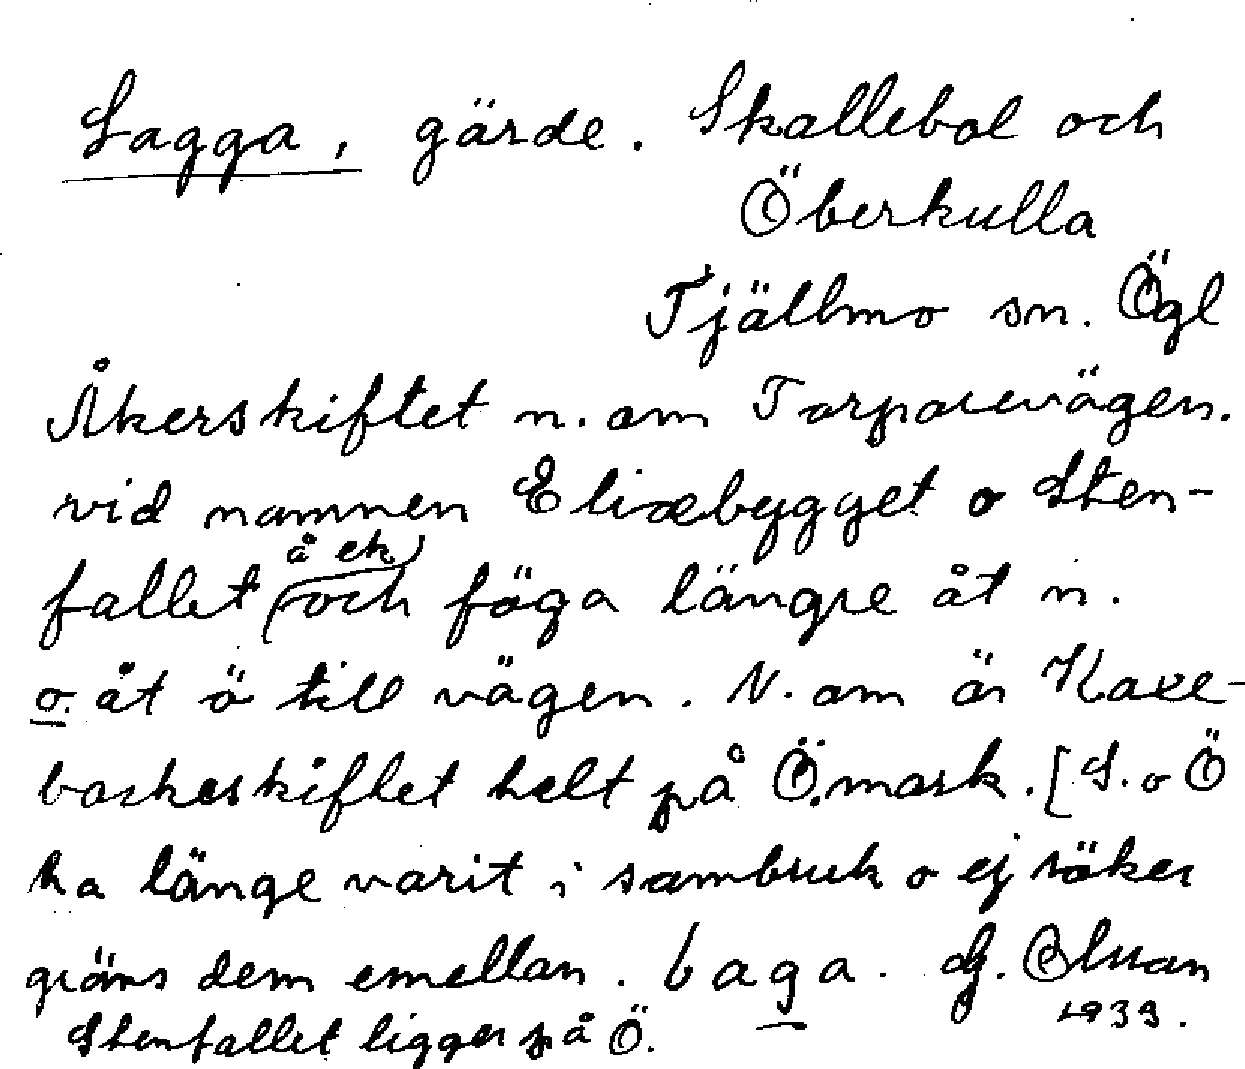 Lagga, gärde. Skallebol och
Överkulla
Tjällmo sn. Ögl
Åkerskiftet n. om Torparevägen.
vid namnen Elixebygget o Sten-
å ek
fallet (och föga längre åt n.
o. åt ö till vägen. N. om är Kaxe-
backeskiftet helt på Ö.mark. [S. o Ö
ha länge varit i sambruk o ej söker
gräns dem emellan. laga. G.
1933.
Stenfallet ligger på Ö.